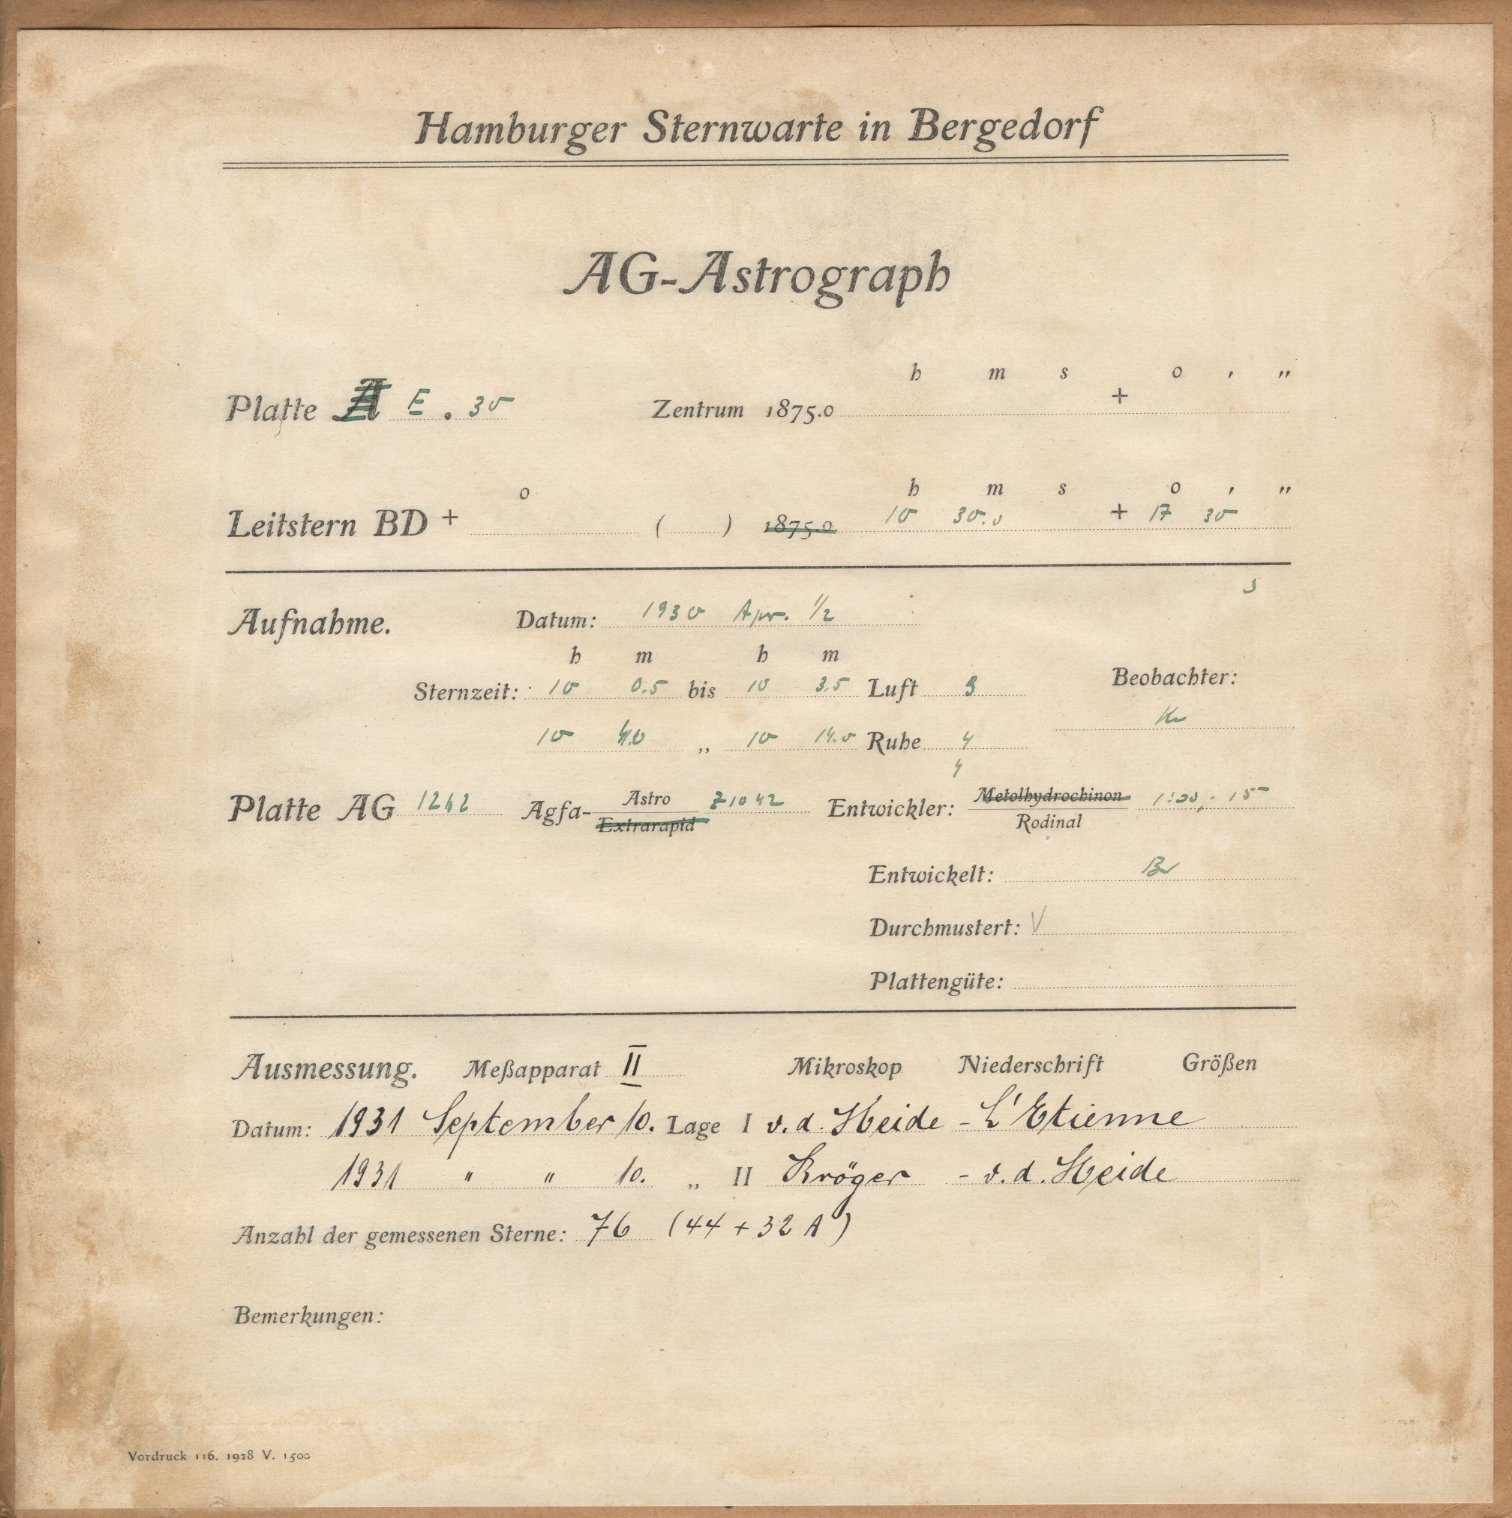 Hamburger Sternwarte in Bergedorf
AG-Astrograph
h m s o ′ ″
Platte A E . 30 Zentrum 1875.0 +
o h m s o ′ ″
Leitstern BD + ( ) 1875.0 10 30.0 + 17 30
Aufnahme. Datum: 1930 Apr. 1/2
h m h m
Sternzeit: 10 0.5 bis 10 3.5 Luft 3 Beobachter:
10 4.0 „ 10 14.0 Ruhe 4
4
Platte AG 1242 Agfa- Astro Z1042 Entwickler: Metolhydrochinon
Extrarapid Rodinal
Entwickelt:
Durchmustert: V
Plattengüte:
Ausmessung. Meßapparat II Mikroskop Niederschrift Größen
Datum: 1931 September 10. Lage I v. d. Heide - L'Etienne
1931 " " 10. „ II Kröger - v. d. Heide
Anzahl der gemessenen Sterne: 76 (44 + 32 A)
Bemerkungen:
Vordruck 116. 1928 V. 1500